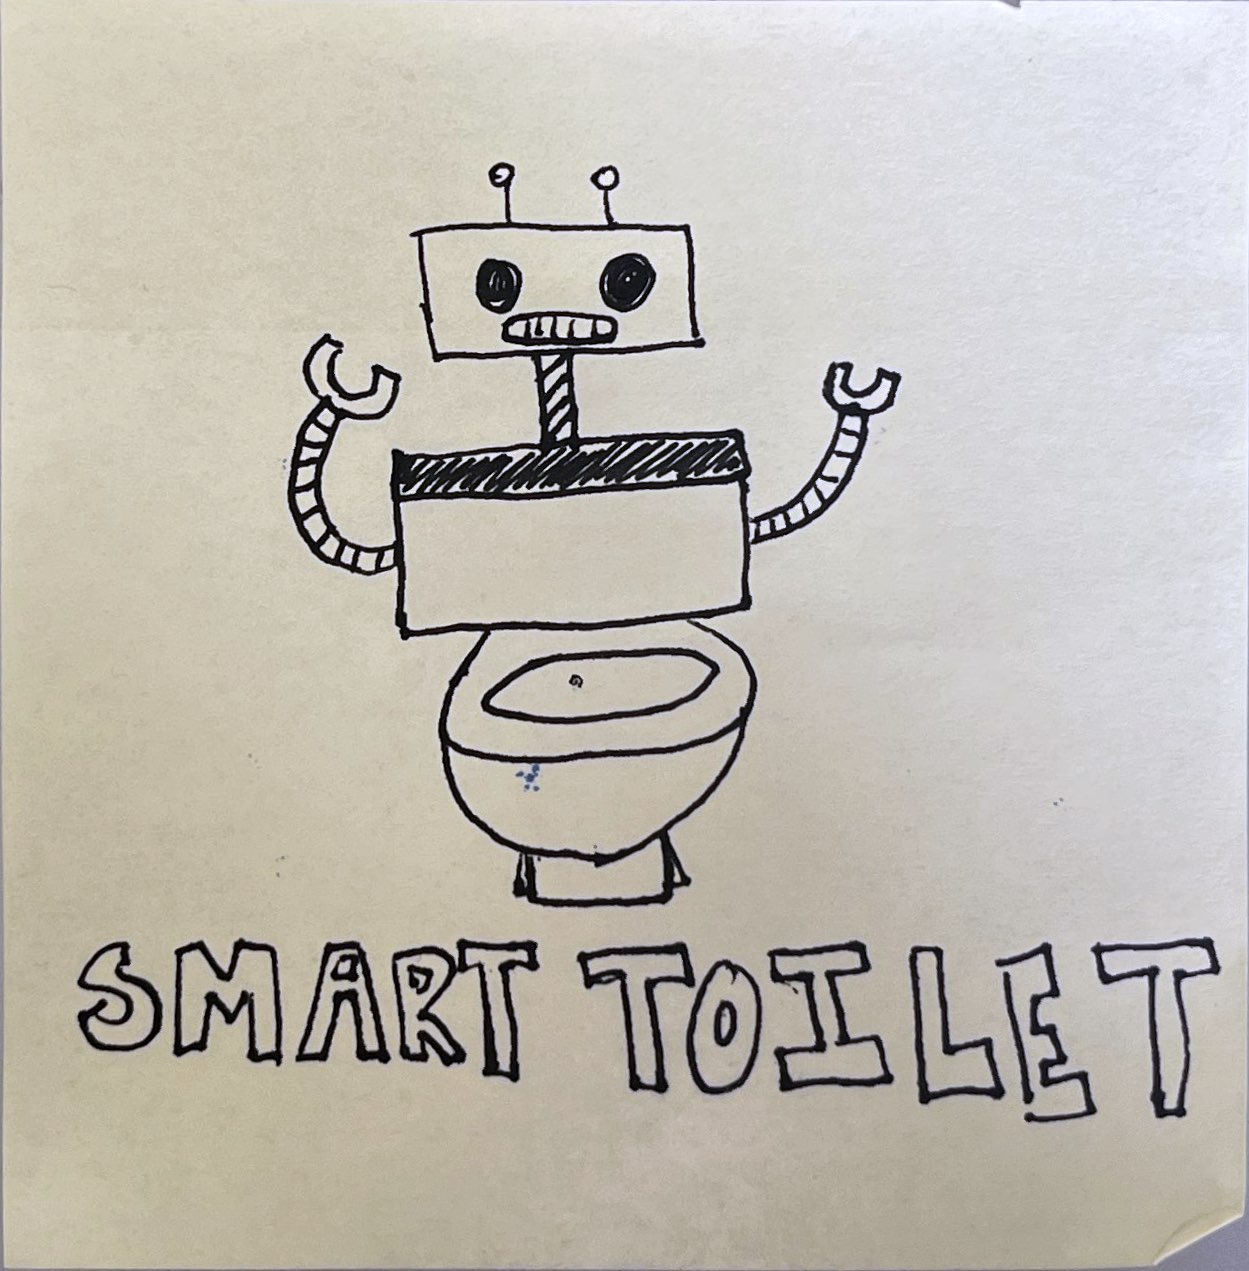 SMART TOILET